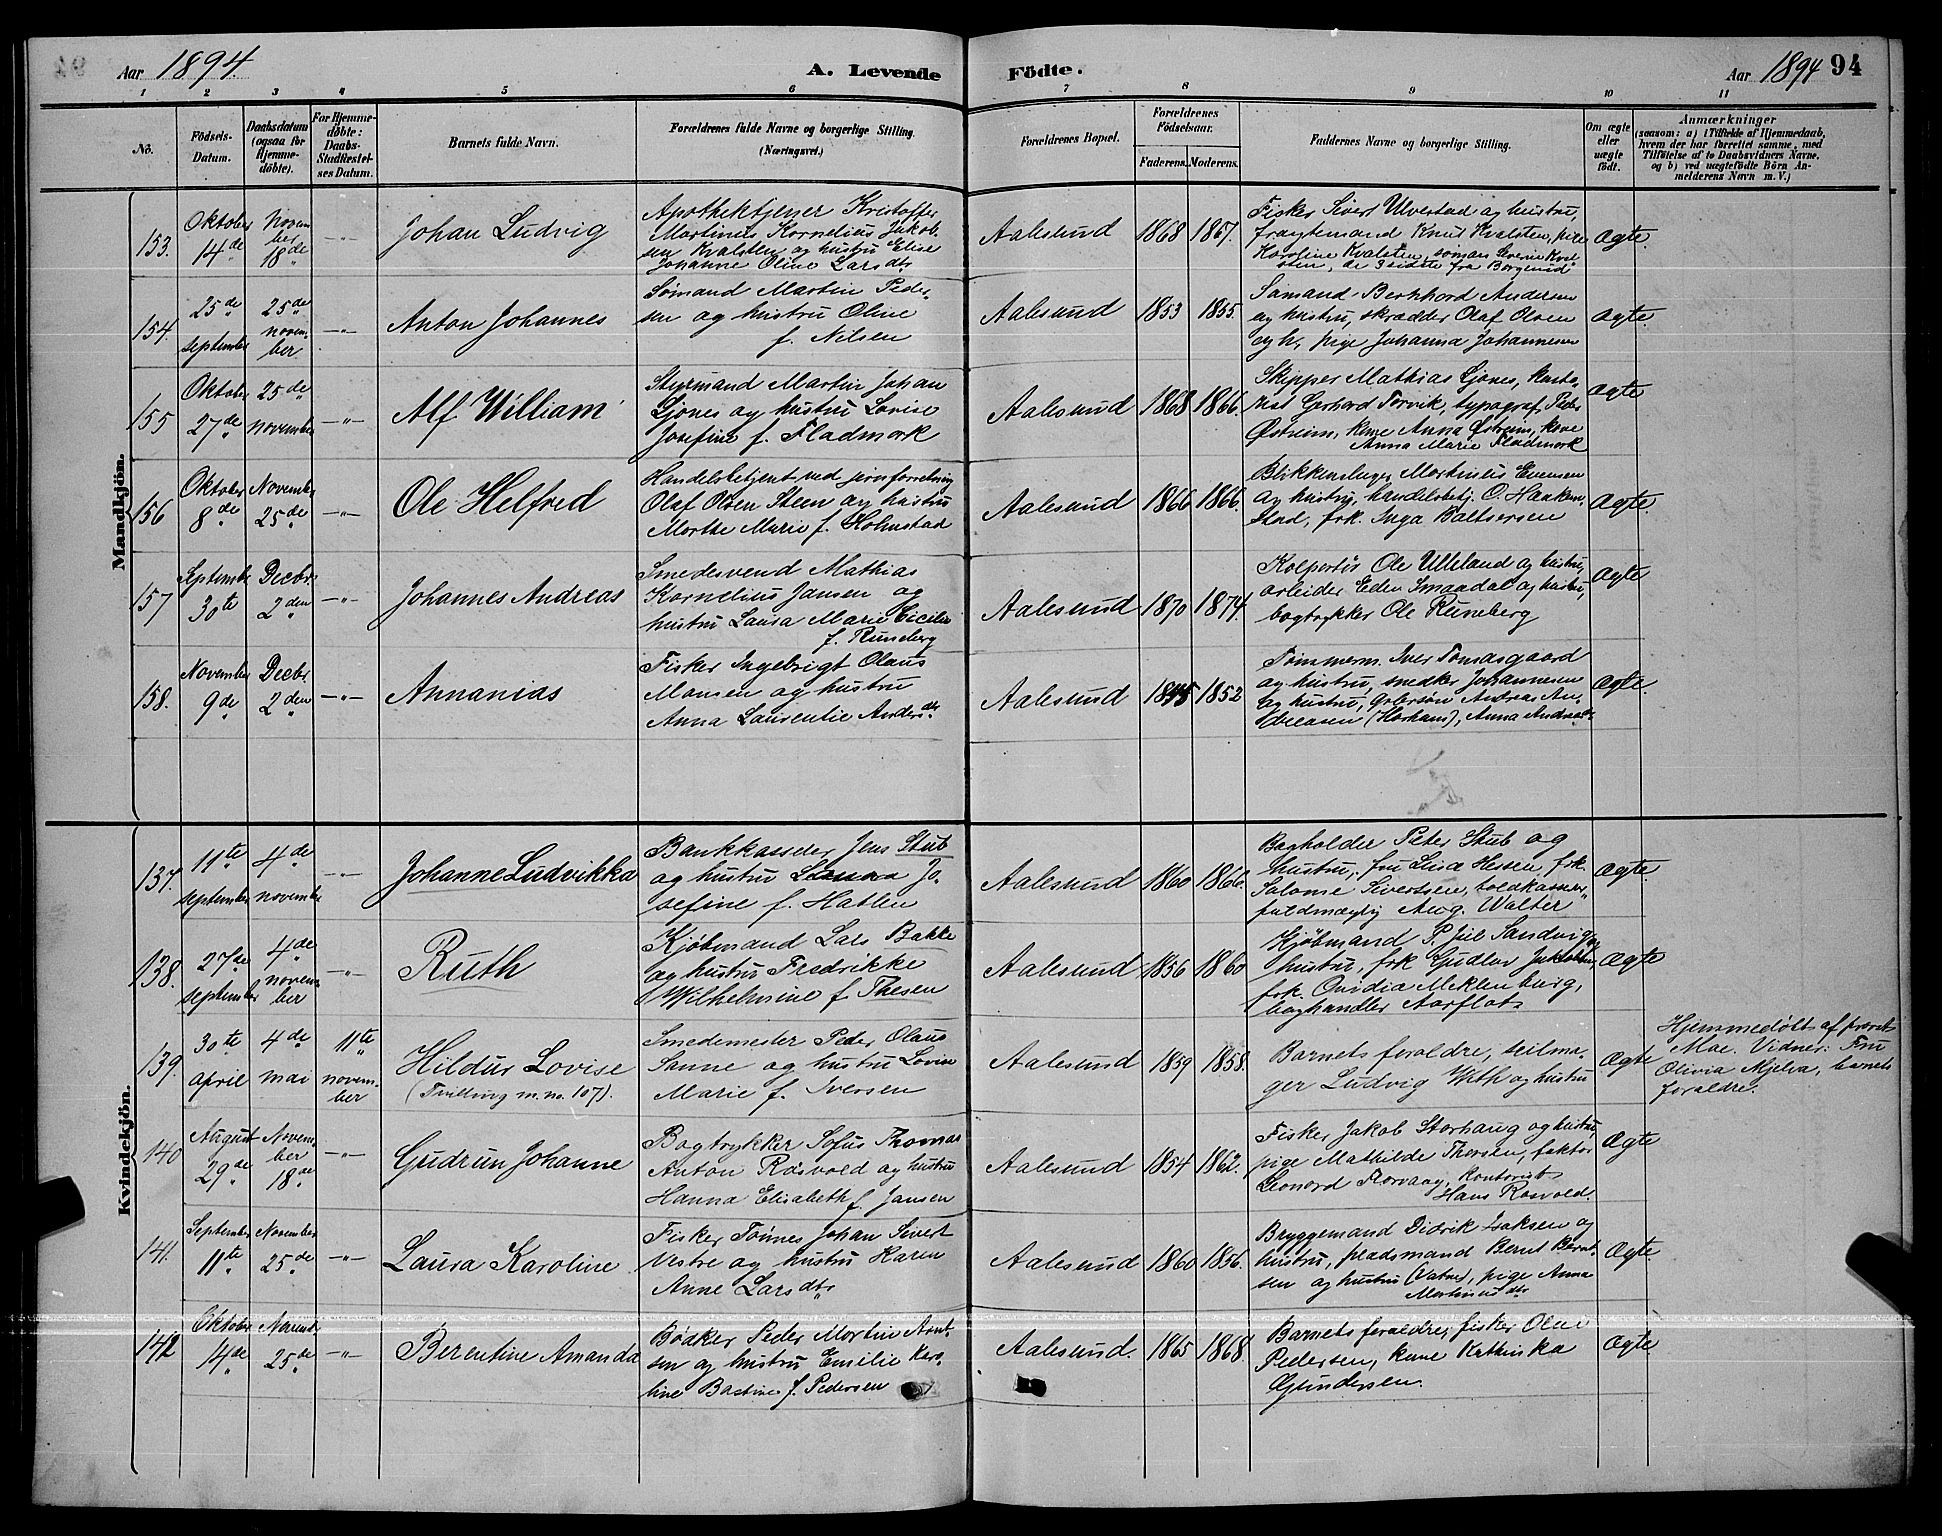 Aar 1894. A. Levende Födte. Aar 1894 94
1 2 3 4 5 6 7 8 9 10 11
No.
Födsels-
Datum.
Daabsdatum
(ogsaa for
Hjemme-
döbte).
For Hjemme-
döbte:
Daabs-
Stadfæstel-
ses Datum.
Barnets fulde Navn.
Forældrenes fulde Navne og borgerlige Stilling.
(Næringsvei.)
Forældrenes Bopæl.
Forældrenes
Födselsaar.
Faderens. Moderens.
Faddernes Navne og borgerlige Stilling.
Om ægte
eller
uægte
födt.
Anmærkninger
(saasom: a) i Tilfælde af Hjemmedaab,
hvem der har forrettet samme, med
Tilföielse af to Daabsvidners Navne,
og b) ved uægtefödte Börn An-
melderens Navn m. V.)
Mandkjön.
153.
Oktober
14de
Novem-
ber
18de
-"-
Johan Ludvig
Apothektjener Kristoffer
Martinus Kornelius Jakob-
sen Kvalsten og hustru Elise
Johanne Oline Larsdtr
Aalesund
1868 1867.
Fisker Sivert Ulvestad og hustru,
fragtemand Knut Kvalsten, pige
Karoline Kvalsten, sömand Severin Kval-
sten, de 3 sidste fra Borgund
Ægte.
154.
25de
september
25de
novem-
ber
-"-
Anton Johannes
Sømand Martin Peder-
sen og hustru Oline
f. Nilsen
Aalesund
1853 1855.
Sømand Bernhard Andersen
og hustru, skrædder Olaf Olsen
og h, pige Johanna Johannesen
Ægte.
155
Oktober
27de
25de
november
-"-
Alf William
Styrmand Martin Johan
Sjones og hustru Lovise
Josefine f. Fladmark
Aalesund
1868 1866.
Skipper Mathias Sjones,
Gerhard Torvik, typograf Peder
Østreim, kone Anna Østreim, kone
Anna Marie Fladmark
Ægte
156
Oktober
8de
November
25de
-"-
Ole Helfred
Handelsbetjent ved jernforretning
Olaf Olsen Steen og hustru
Marthe Marie f. Holmstad
Aalesund
1866 1866.
Blikkenslager Martinus Evensen
og hustru, handelsbetj. O. Haaken-
stad, frk. Inga Baltsersen
Ægte.
157
September
30te
Decbr.
2den
-"-
Johannes Andreas
Smedesvend Mathias
Kornelius Jansen og
hustru Laura Marie Cicilie
f. Runeberg
Aalesund
1870 1874.
Kolportör Ole Ulleland og hustru,
arbeider Eden Innandal og hustru,
bogtrykker Ole Runeberg
Ægte
158.
November
9de
Decbr.
2den
-"-
Annanias
Fisker Ingebrigt Olaus
Monsen og hustru
Anna Laurentie Andersdtr.
Aalesund
1845 1852
Tømmerm. Iver Tomasgaard
og hustru, snedker Johannesen
og hustru, Andreas An-
dreasen (Horhans), Anna Andreasdtr
Ægte.
Kvindekjön.
137.
11te
september
4de
november
-"-
Johanne Ludvikka
Bankkasserer Jens Stub
og hustru Hanna Jo-
sefine f. Hatlen
Aalesund
1860 1866.
Bogholder Peter Stub og
hustru, fru Lusie Hessen, frk.
Salome Sivertsen, toldkasserer-
fuldmægtig Aug. Walter
Ægte.
138.
27de
september
4de
novem-
ber
-"-
Ruth
Kjøbmand Lars Bakke
og hustru Fredrikke
Wilhelmine f. Thesen
Aalesund
1856 1860
Kjøbmand P. Juel Sandvig og
hustru, frk Gudlov Jakobsen,
frk. Ovidia Meklenburg,
boghandler Aarflot
Ægte
139.
30te
april
4de
mai
11te
novem-
ber
Hildur Lovise
(Tvilling m. no. 107).
Smedemester Peder Olaus
Sanne og hustru Lovise
Marie f. Iversen
Aalesund
1859 1858.
Barnets forældre, seilma-
ger Ludvig With og hustru
Ægte
Hjemmedöbt af
Moe. Vidner: Fru
Olivia Mjelva, barnets
forældre.
140
August
29de
Novem-
ber
18de
-"-
Gudrun Johanne
Bogtrykker Sofus Thomas
Anton Røsvold og hustru
Hanna Elisabeth f. Jansen
Aalesund
1854 1862.
Fisker Jakob Storhaug og hustru,
pige Mathilde Thorsen, faktor
Leonard Florvaag, kontorist
Hans Røsvold.
Ægte
141.
September
11te
November
25de
-"-
Laura Karoline
Fisker Tönnes Johan Sivert
Vestre og hustru Karen
Anne Larsdtr
Aalesund
1860 1856.
Bryggemand Didrik Isaksen og
hustru, pladsmand Bernt Bernt-
sen og hustru (Vatne), pige Anna
Martinusdtr
Ægte.
142
Oktober
14de
November
25de
-"-
Berentine Amanda
Bødker Peder Martin Arnt-
sen og hustru Emilie Karo-
line Bastine f. Pedersen
Aalesund.
1865 1868.
Barnets forældre, fisker Olai
Pedersen, kone Kathinka
Gundersen.
Ægte.